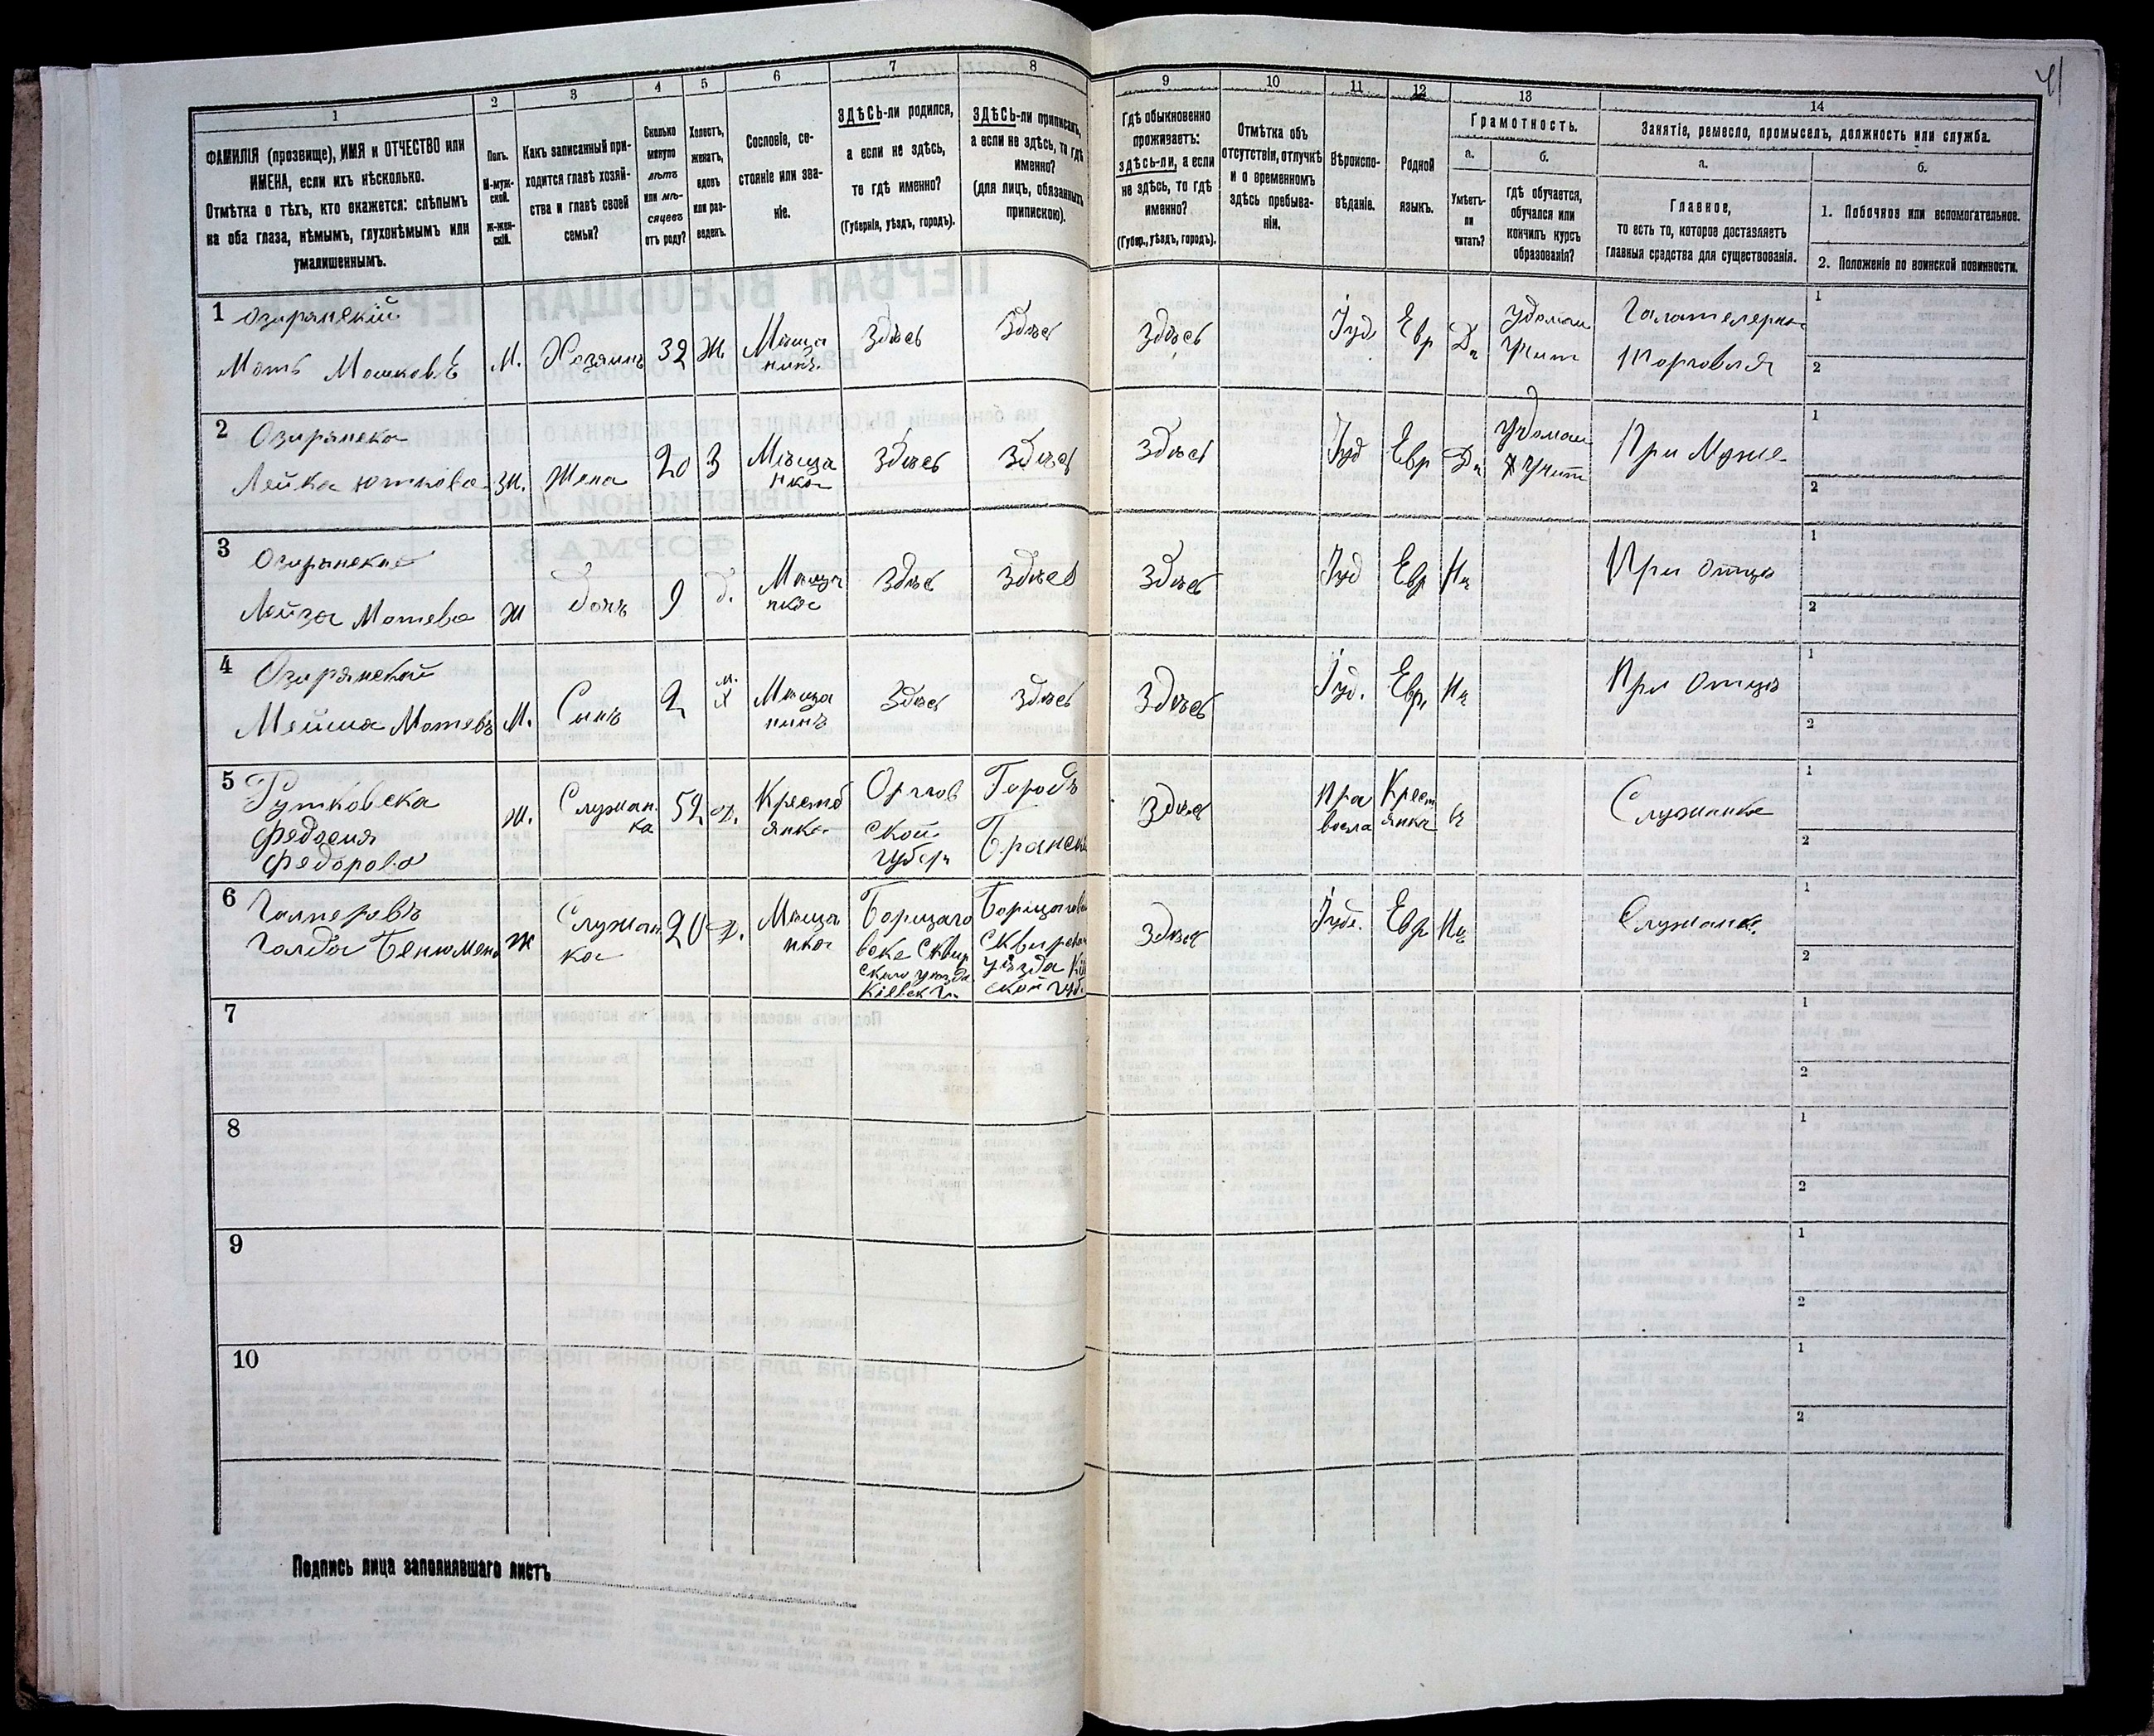 41
1 2 3 4 5 6 7 8 9 10 11 12 13 14
ФАМИЛІЯ (прозвище), ИМЯ и ОТЧЕСТВО или
ИМЕНА, если ихъ нѣсколько.
Отмѣтка о тѣхъ, кто окажется: слѣпымъ
на оба глаза, нѣмымъ, глухонѣмымъ или
умалишеннымъ.
Полъ.
М-муж-
ской.
Ж-жен-
скій.
Какъ записанный при-
ходится главѣ хозяй-
ства и главѣ своей
семьи?
Сколько
минуло
лѣтъ
или мѣ-
сяцевъ
отъ роду?
Холостъ,
женатъ,
вдовъ
или раз-
веденъ.
Сословіе, со-
стояніе или зва-
ніе.
ЗДѢСЬ-ли родился,
а если не здѣсь,
то гдѣ именно?
(Губернія, уѣздъ, городъ).
ЗДѢСЬ-ли приписанъ,
а если не здѣсь, то гдѣ
именно?
(для лицъ, обязанныхъ
припискою).
Гдѣ обыкновенно
проживаетъ:
здѣсь-ли, а если
не здѣсь, то гдѣ
именно?
(Губер., уѣздъ, городъ).
Отмѣтка объ
отсутствіи, отлучкѣ
и о временномъ
здѣсь пребыва-
ніи.
Вѣроиспо-
вѣданіе.
Родной
языкъ.
Грамотность.
а.
Умѣетъ-
ли
читать?
б.
Гдѣ обучается,
обучался или
кончилъ курсъ
образованія?
Занятіе, ремесло, промыселъ, должность или служба.
а.
Главное,
то есть то, которое доставляетъ
главныя средства для существованія.
б.
1. Побочное или вспомогательное.
2. Положеніе по воинской повинности.
1 Озирянскій
Моть Мошковъ М. Хозяинъ 32 Ж. Мѣща
нинъ здѣсь здѣсь здѣсь Іуд Евр Да удомаш
Учит Галантерейн
Торговля 1
2
2 Озирянска
Лейка Юткова Ж. Жена 20 З Мѣща
нка здѣсь здѣсь здѣсь Іуд Евр Да удомаш
Учит При Муже 1
2
3 Озирянска
Лейза Мотева Ж дочь 9 д. Мѣща
нка здѣсь здѣсь здѣсь Іуд Евр Нѣ При отцѣ 1
2
4 Озирянскій
Мейша Мотевъ М. Сынъ 2 м.
х Мѣща
нинъ здѣсь здѣсь здѣсь Іуд. Евр. Нѣ При Отцѣ 1
2
5 Рутковска
Федосия
Федорова Ж. Служан
ка 52 д. Крестя
янка Орлов
ской
Губер Городъ
Бранск здѣсь Пра
восла Крест
янка Служанка 1
2
6 Гальперовъ
Голда Бенюмен Ж Служан
ка 20 д. Мѣща
нка Борщаго
вске Сквир
скаго уѣзда
Кіевск Г. Борщагов
Сквирск
уѣзда Кі
ской губ. здѣсь Іуде. Евр Нѣ Служанк. 1
2
7 1
2
8 1
2
9 1
2
10 1
2
Подпись лица заполнявшаго листъ